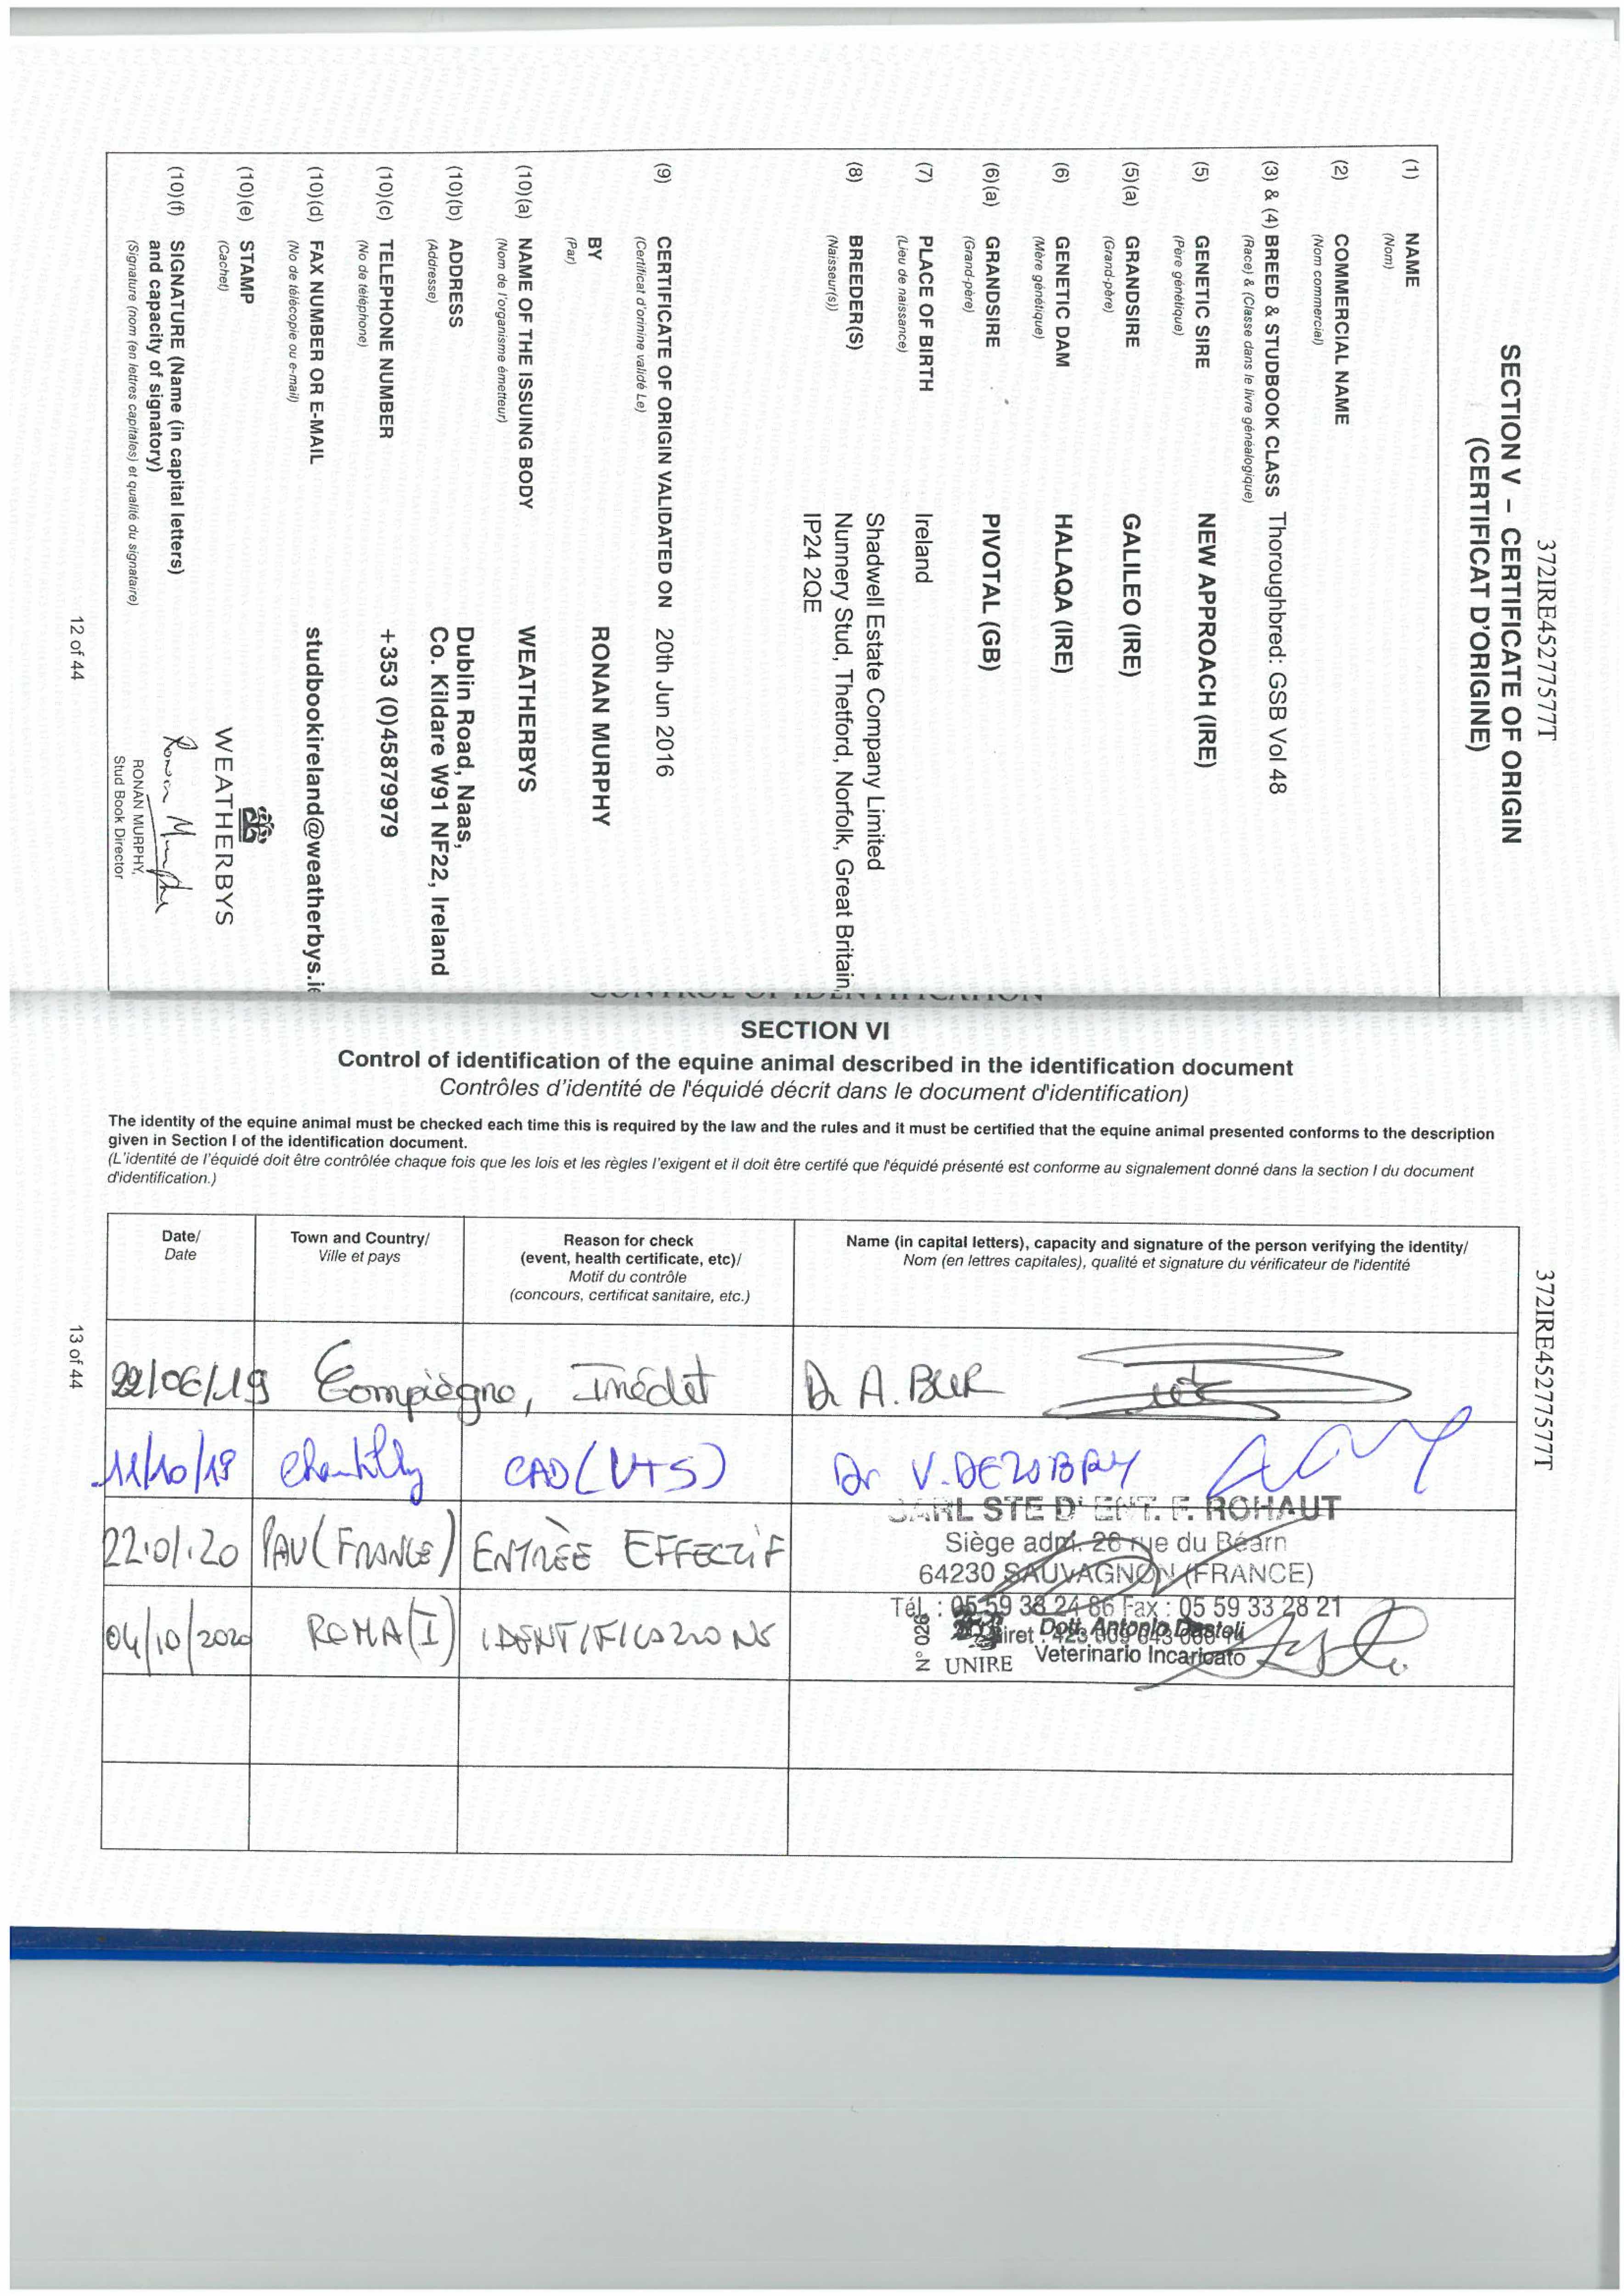 372IRE45277577T
SECTION V – CERTIFICATE OF ORIGIN
(CERTIFICAT D'ORIGINE)
(1) NAME
(Nom)
(2) COMMERCIAL NAME
(Nom commercial)
(3) & (4) BREED & STUDBOOK CLASS Thoroughbred: GSB Vol 48
(Race) & (Classe dans le livre généalogique)
(5) GENETIC SIRE NEW APPROACH (IRE)
(Père génétique)
(5)(a) GRANDSIRE GALILEO (IRE)
(Grand-père)
(6) GENETIC DAM HALAQA (IRE)
(Mère génétique)
(6)(a) GRANDSIRE PIVOTAL (GB)
(Grand-père)
(7) PLACE OF BIRTH Ireland
(Lieu de naissance)
(8) BREEDER(S) Shadwell Estate Company Limited
(Naisseur(s)) Nunnery Stud, Thetford, Norfolk, Great Britain,
IP24 2QE
(9) CERTIFICATE OF ORIGIN VALIDATED ON 20th Jun 2016
(Certificat d'orinine validé Le)
BY RONAN MURPHY
(Par)
(10)(a) NAME OF THE ISSUING BODY WEATHERBYS
(Nom de l'organisme émetteur)
(10)(b) ADDRESS Dublin Road, Naas,
(Addresse) Co. Kildare W91 NF22, Ireland
(10)(c) TELEPHONE NUMBER +353 (0)45879979
(No de téléphone)
(10)(d) FAX NUMBER OR E-MAIL studbookireland@weatherbys.ie
(No de télécopie ou e-mail)
(10)(e) STAMP WEATHERBYS
(Cachet)
(10)(f) SIGNATURE (Name (in capital letters) Ronan Murphy
and capacity of signatory)
(Signature (nom (en lettres capitales) et qualité du signataire)
RONAN MURPHY,
Stud Book Director
12 of 44
CONTROL OF IDENTIFICATION
SECTION VI
Control of identification of the equine animal described in the identification document
Contrôles d'identité de l'équidé décrit dans le document d'identification)
The identity of the equine animal must be checked each time this is required by the law and the rules and it must be certified that the equine animal presented conforms to the description
given in Section I of the identification document.
(L'identité de l'équidé doit être contrôlée chaque fois que les lois et les règles l'exigent et il doit être certifé que l'équidé présenté est conforme au signalement donné dans la section I du document
d'identification.)
Date/
Date
Town and Country/
Ville et pays
Reason for check
(event, health certificate, etc)/
Motif du contrôle
(concours, certificat sanitaire, etc.)
Name (in capital letters), capacity and signature of the person verifying the identity/
Nom (en lettres capitales), qualité et signature du vérificateur de l'identité
22/06/19 Compiègne, Inédit Dr A. BUR
11/10/19 Chantilly CAD (VTS) Dr V. DEZOBRY
22.01.20 PAU (FRANCE) ENTRÈE EFFECTIF
SARL STE D'ENT. F. ROHAUT
Siège adm. 26 rue du Béarn
64230 SAUVAGNON (FRANCE)
Tél. : 05 59 33 24 86 Fax : 05 59 33 28 21
04/10/2020 ROMA (I) IDENTIFICAZIONS
Dott. Antonio Dastoli
N° 026 UNIRE Veterinario Incaricato
372IRE45277577T
13 of 44